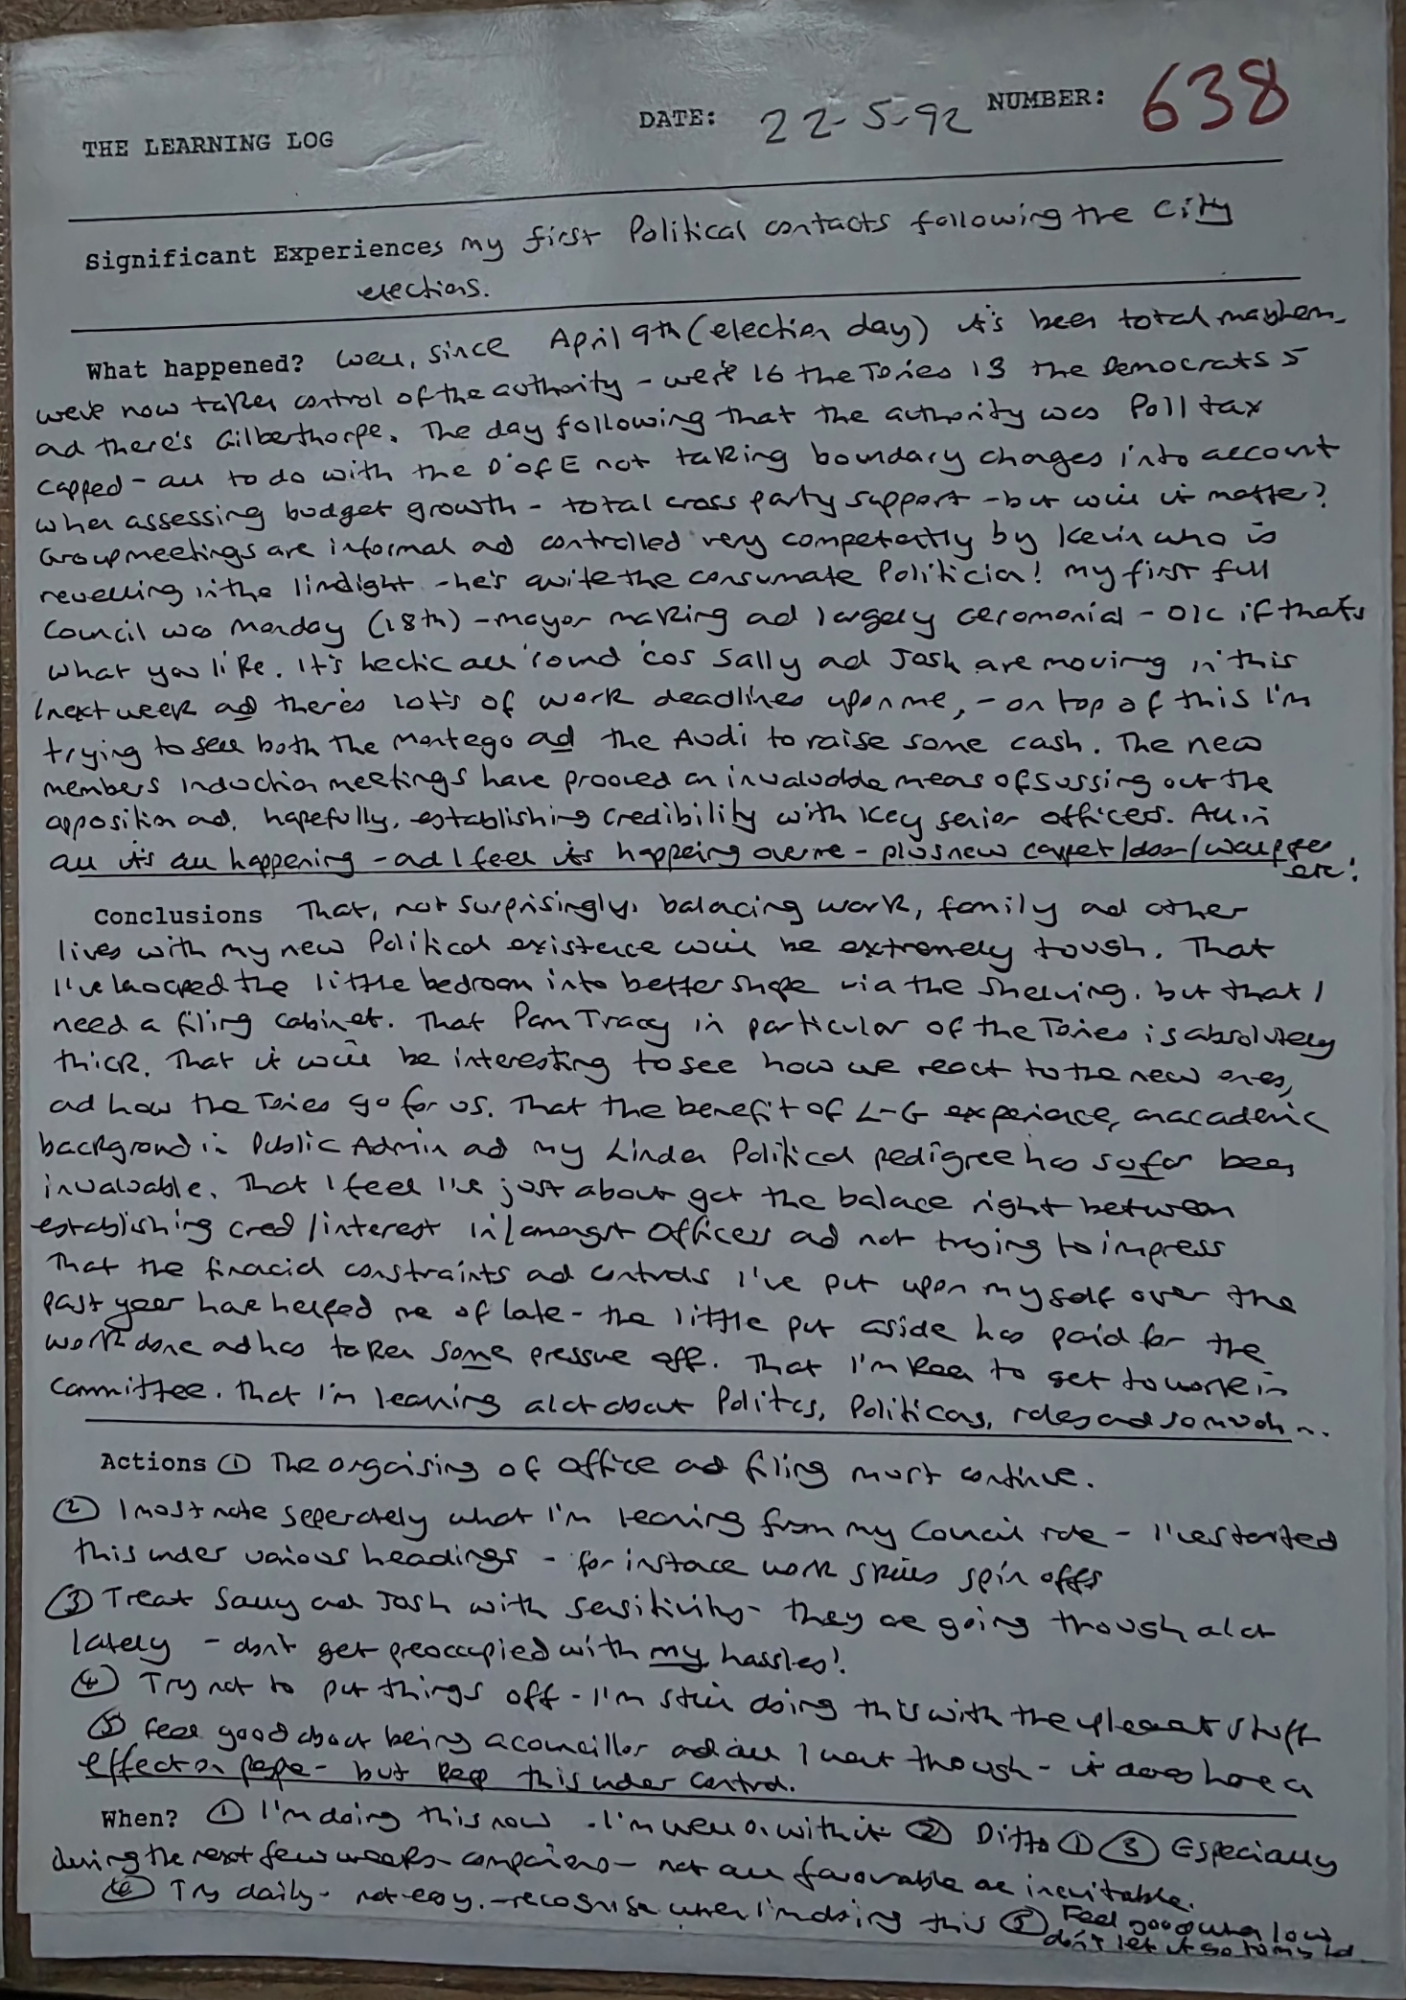 THE LEARNING LOG DATE: 22-5-92 NUMBER: 638
Significant Experiences my first Political contacts following the city
elections.
What happened? Well, since April 9th (election day) it's been total mayhem.
We've now taken control of the authority - we're 16 the Tories 13 the Democrats 5
ad there's Gilberthorpe. The day following that the authority was Poll tax
capped - all to do with the D'of E not taking boundary changes into account
when assessing budget growth - total cross party support - but will it matter?
Group meetings are informal ad controlled very competently by Kevin who is
revelling in the limelight - he's quite the consumate Politician! My first full
Council was Monday (18th) - mayor making ad largely ceromonial - OK if thats
what you like. It's hectic all 'round 'cos Sally ad Josh are moving in this
/next week ad there's lot's of work deadlines upon me, - on top of this I'm
trying to sell both the Montego ad the Audi to raise some cash. The new
members induction meetings have prooved an invaluable means of sussing out the
opposition ad, hopefully, establishing credibility with key senior officers. All in
all it's all happening - ad I feel its happening over me - plus new carpet/door/wallpaper
etc!
Conclusions That, not surprisingly, balancing work, family ad other
lives with my new Political existence will be extremely tough. That
I've knocked the little bedroom into better shape via the shelving, but that I
need a filing cabinet. That Pam Tracy in particular of the Tories is absolutely
thick. That it will be interesting to see how we react to the new ones,
ad how the Tories go for us. That the benefit of L-G experience, an academic
background in Public Admin ad my Linden Political pedigree has so far been
invaluable. That I feel I've just about got the balance right between
establishing cred/interest in/amongst officers ad not trying to impress
That the financial constraints ad controls I've put upon myself over the
past year have helped me of late - the little put aside has paid for the
work done ad has taken some pressure off. That I'm keen to get to work in
committee. That I'm learning alot about Politics, Politicians, roles and so much ...
Actions ① The organising of office ad filing must continue.
② I must note seperately what I'm learning from my Council role - I've started
this under various headings - for instance work skills spin offs
③ Treat Sally ad Josh with sensitivity - they are going through alot
lately - don't get preoccupied with my hassles!
④ Try not to put things off - I'm still doing this with the unpleasant stuff
⑤ Feel good about being a councillor ad all I went through - it does have a
effect on people - but keep this under control.
When? ① I'm doing this now - I'm well on with it ② Ditto ① ③ Especially
during the next few weeks - comparisons - not all favourable are inevitable.
④ Try daily - not easy - recognise when I'm doing this ⑤ Feel good when low
don't let it go to my hd